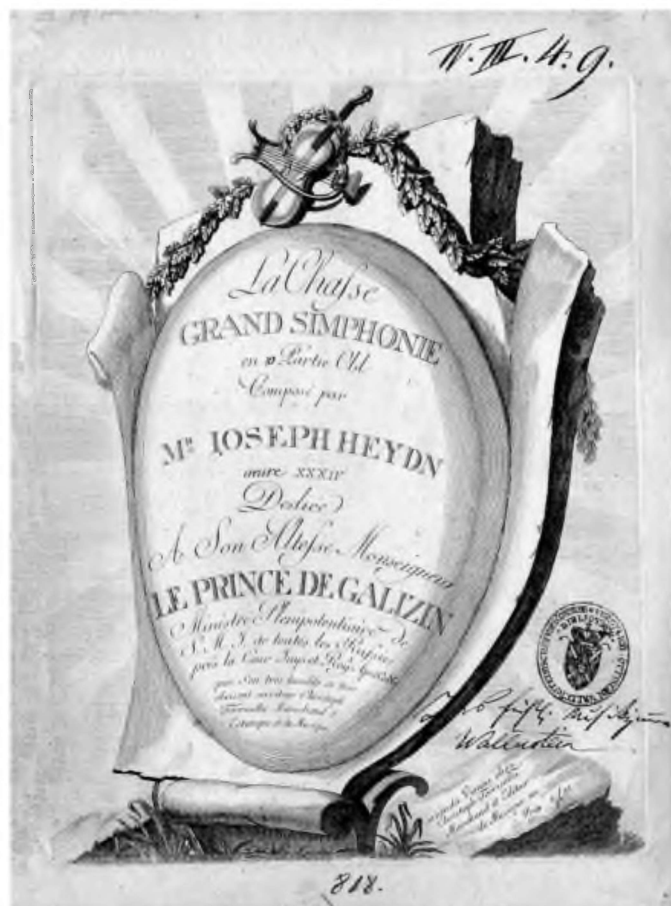 IV. III. 4. 9.
La Chasse
GRAND SIMPHONIE
en Partie Obl.
Composé par
Mr. IOSEPH HEYDN
œuvre XXXIV
Dediée
A Son Altesse Monseigneur
LE PRINCE DE GALIZIN
Ministre Plenipotentiaire de
S. M. I. de toutes les Russies
près la Cour Imp. et Roy.
par Son tres humble et tres
Christoph
Torricella Marchand d'
Estampes et de Musique
Wallerstein
Vienne chez
Christoph Torricella
Marchand et Editeur
de Musique
818.